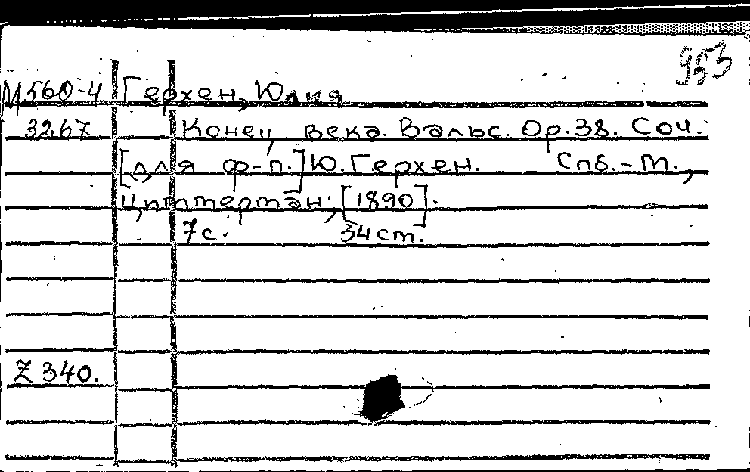 953
М560-4 Герхен, Юлия
3267 Конец века. Вальс. Op.38. Соч.
[для ф-п.] Ю. Герхен. Спб.-М.,
Циммерман, [1890].
7с. 34см.
Z 340.